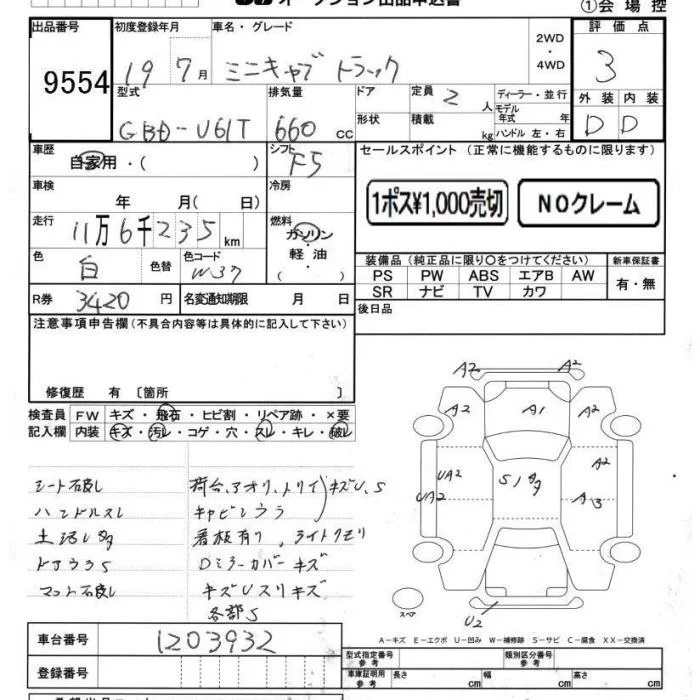 オークション出品申込書
①会場控
出品番号 初度登録年月 車名・グレード 2WD・4WD 評価点
9554 19 7月 ミニキャブ トラック 3
型式 排気量 ドア 定員 2人 ディーラー・並行 外装 内装
GBD-U61T 660cc 形状 積載 kg モデル年式 年 ハンドル 左・右 D D
車歴 自家用・( ) シフト F5 セールスポイント (正常に機能するものに限ります)
車検 年 月( 日) 冷房
1ポス¥1,000売切 NOクレーム
走行 11万6千235km 燃料 ガソリン・軽油・( )
色 白 色替 色コード W37 装備品 (純正品に限り○をつけてください) 新車保証書
PS PW ABS エアB AW 有・無
SR ナビ TV カワ
R券 3420円 名変通知期限 月 日 後日品
注意事項申告欄(不具合内容等は具体的に記入して下さい)
修復歴 有 〔箇所 〕
検査員記入欄 FW キズ・飛石・ヒビ割・リペア跡・×要
内装 キズ・汚レ・コゲ・穴・スレ・キレ・破レ
A2 A2
A2 A1 A2
UA2 A2
UA2 S A3
U2
スペア
シート破レ 荷台、アオリ、トリイ キズU、S
ハンドルスレ
看板有り、ライトクモリ
Dミラーカバーキズ
マット破レ キズUスリキズ
各部S
A-キズ E-エクボ U-凹み W-補修跡 S-サビ C-腐食 XX-交換済
車台番号 1203932 型式指定番号 参考 類別区分番号 参考
登録番号 車庫証明用 参考 長さ cm 幅 cm 高さ cm